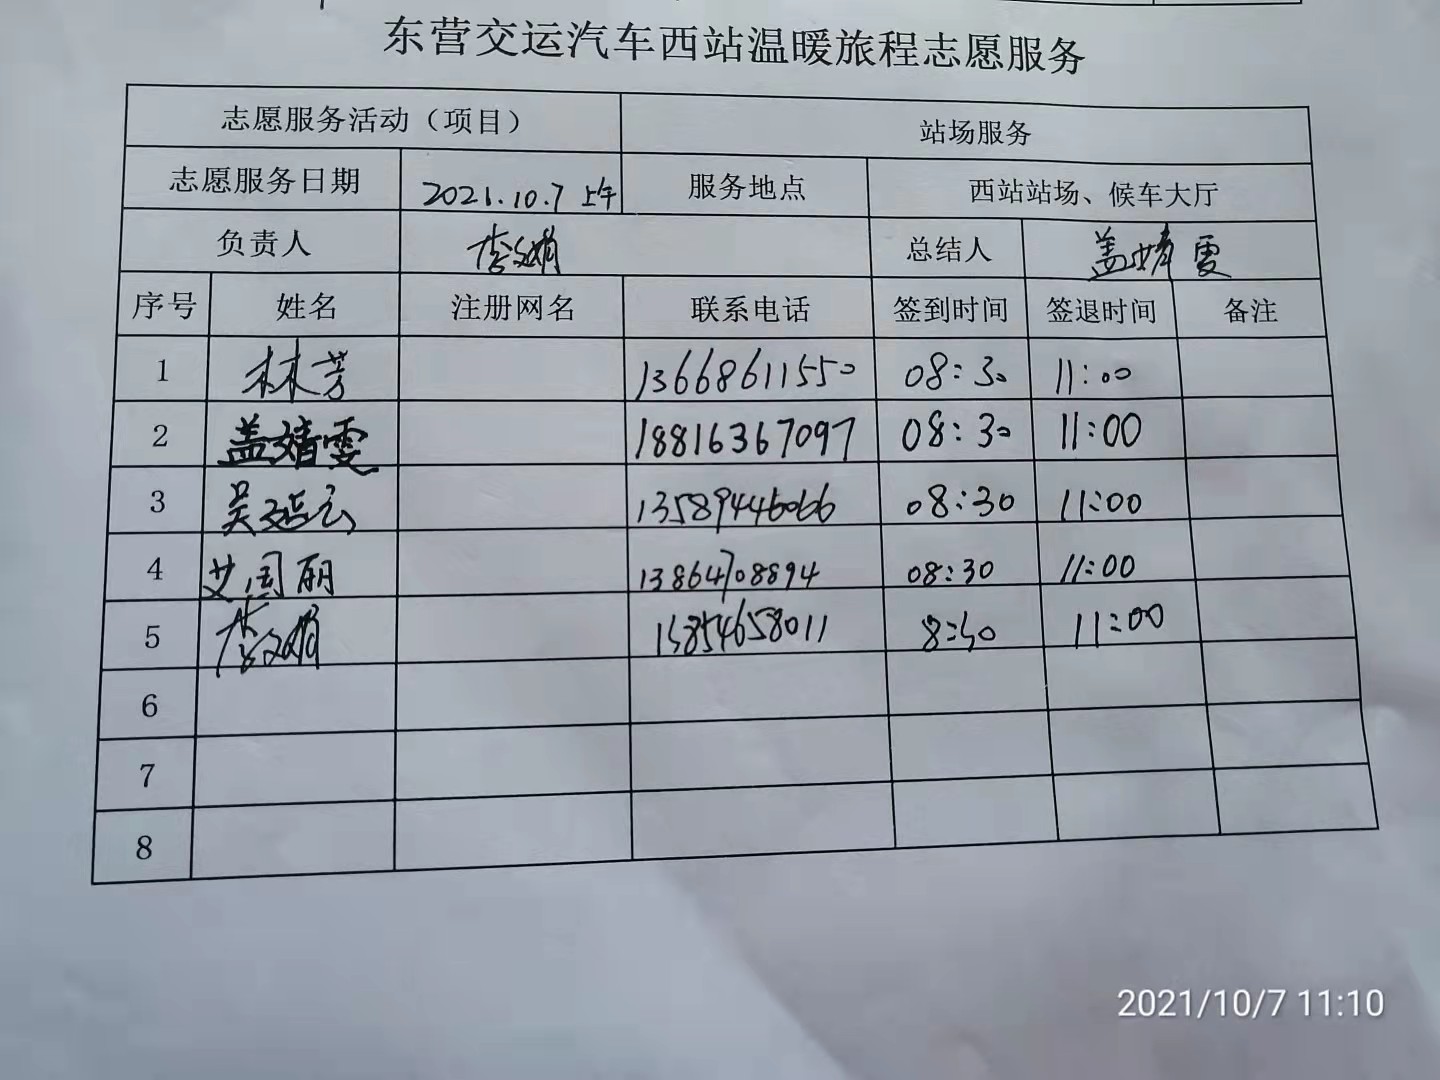 东营交运汽车西站温暖旅程志愿服务
志愿服务活动（项目） 站场服务
志愿服务日期 2021.10.7 上午 服务地点 西站站场、候车大厅
负责人 李文娟 总结人 盖婧雯
序号 姓名 注册网名 联系电话 签到时间 签退时间 备注
1 林芳 13668611550 08:30 11:00
2 盖婧雯 18816367097 08:30 11:00
3 吴延云 13589446066 08:30 11:00
4 艾国丽 13864708894 08:30 11:00
5 李文娟 15854658011 8:30 11:00
6
7
8
2021/10/7 11:10